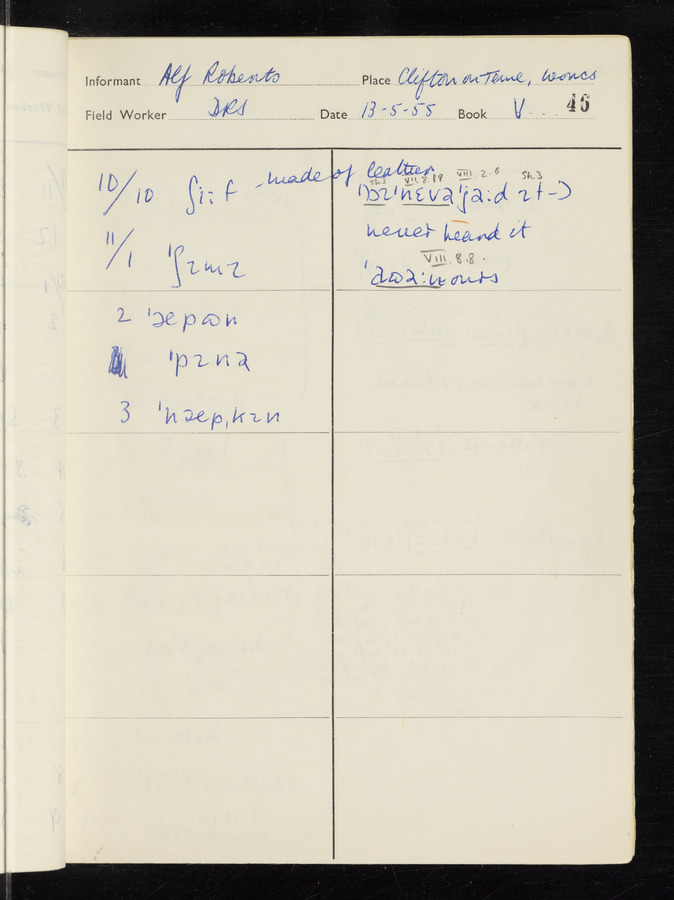 Informant Alf Roberts Place Clifton on Teme, Worcs
Field Worker DRS Date 13-5-55 Book V 46
10/10 ʃi:f - made of leather
11/1 'ʃɪmɪ
2 'æpɷn
'pɪnə
3 'næp,kɪn
Sh3 VII.8.19 VIII.2.6 Sh3
'nɛvə 'jə:d ɪt
never heard it
VIII.8.8.